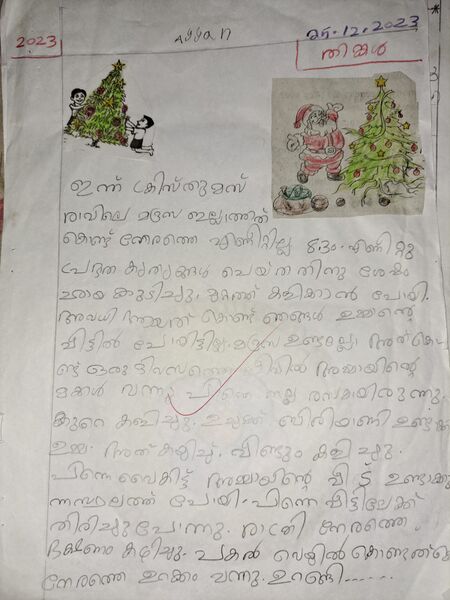 2023
25.12.2023
തിങ്കൾ
ഇന്ന് ക്രിസ്തുമസ്
രാവിലെ മദ്രസ ഇല്ലാത്തത്
കൊണ്ട് നേരത്തെ എണിറ്റില്ല 8.30 എണിറ്റു
പ്രഭാത കൃത്യങ്ങൾ ചെയ്തതിനു ശേഷം
ചായ കുടിച്ചു. മുറ്റത്ത് കളിക്കാൻ പോയി.
അവധി ആയത് കൊണ്ട് ഞങ്ങൾ ഉമ്മാന്റെ
വീട്ടിൽ പോയിട്ടില്ല. മദ്രസ ഉണ്ടല്ലോ അത് കൊ
ണ്ട് ഒരു ദിവസത്തെ അമ്മായിന്റെ
മക്കൾ വന്നു. പിന്നെ നല്ല രസമായിരുന്നു.
കുറെ കളിച്ചു. ഉച്ചക്ക് ബിരിയാണി
ഉമ്മ. അത് കഴിച്ച്. വീണ്ടും കളിച്ചു.
പിന്നെ വൈകിട്ട് അമ്മായിന്റെ വീട് ഉണ്ടാക്കു
ന്നസ്ഥലത്ത് പോയി. പിന്നെ വീട്ടിലേക്ക്
തിരിച്ചു പോന്നു. രാത്രി നേരത്തെ
ഭക്ഷണം കഴിച്ചു. പകൽ വെയിൽ കൊണ്ടത്
നേരത്തെ ഉറക്കം വന്നു. ഉറങ്ങി......